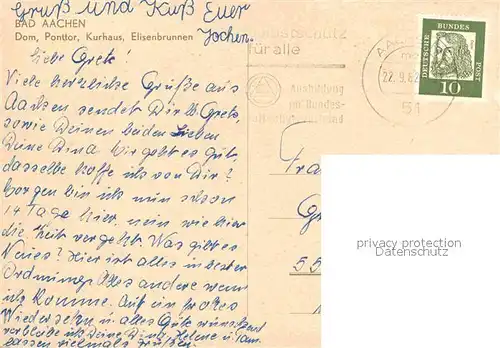 Gruß und Kuß Euer
Jochen.
BAD AACHEN
Dom, Ponttor, Kurhaus, Elisenbrunnen
Liebe Grete!
Viele herzliche Grüße aus
Aachen sendet Dir lb. Grete,
sowie Deinen beiden Lieben
Deine Dina. Mir geht es gut,
dasselbe hoffe ich von Dir?
Morgen bin ich nun schon
14 Tage hier, nein wie hier
die Zeit vergeht. Was gibt es
Neues? Hier ist alles in bester
Ordnung. Alles andere wenn
ich komme. Auf ein frohes
Wiedersehn u. alles Gute wünschend
verbleibe ich Deine Dina. Helene u.
lassen vielmals grüßen.
Selbstschutz
für alle
Ausbildung
im Bundes-
luftschutzverband
22.9.62
DEUTSCHE BUNDESPOST
10
Fra
Gr
55
privacy protection
Datenschutz